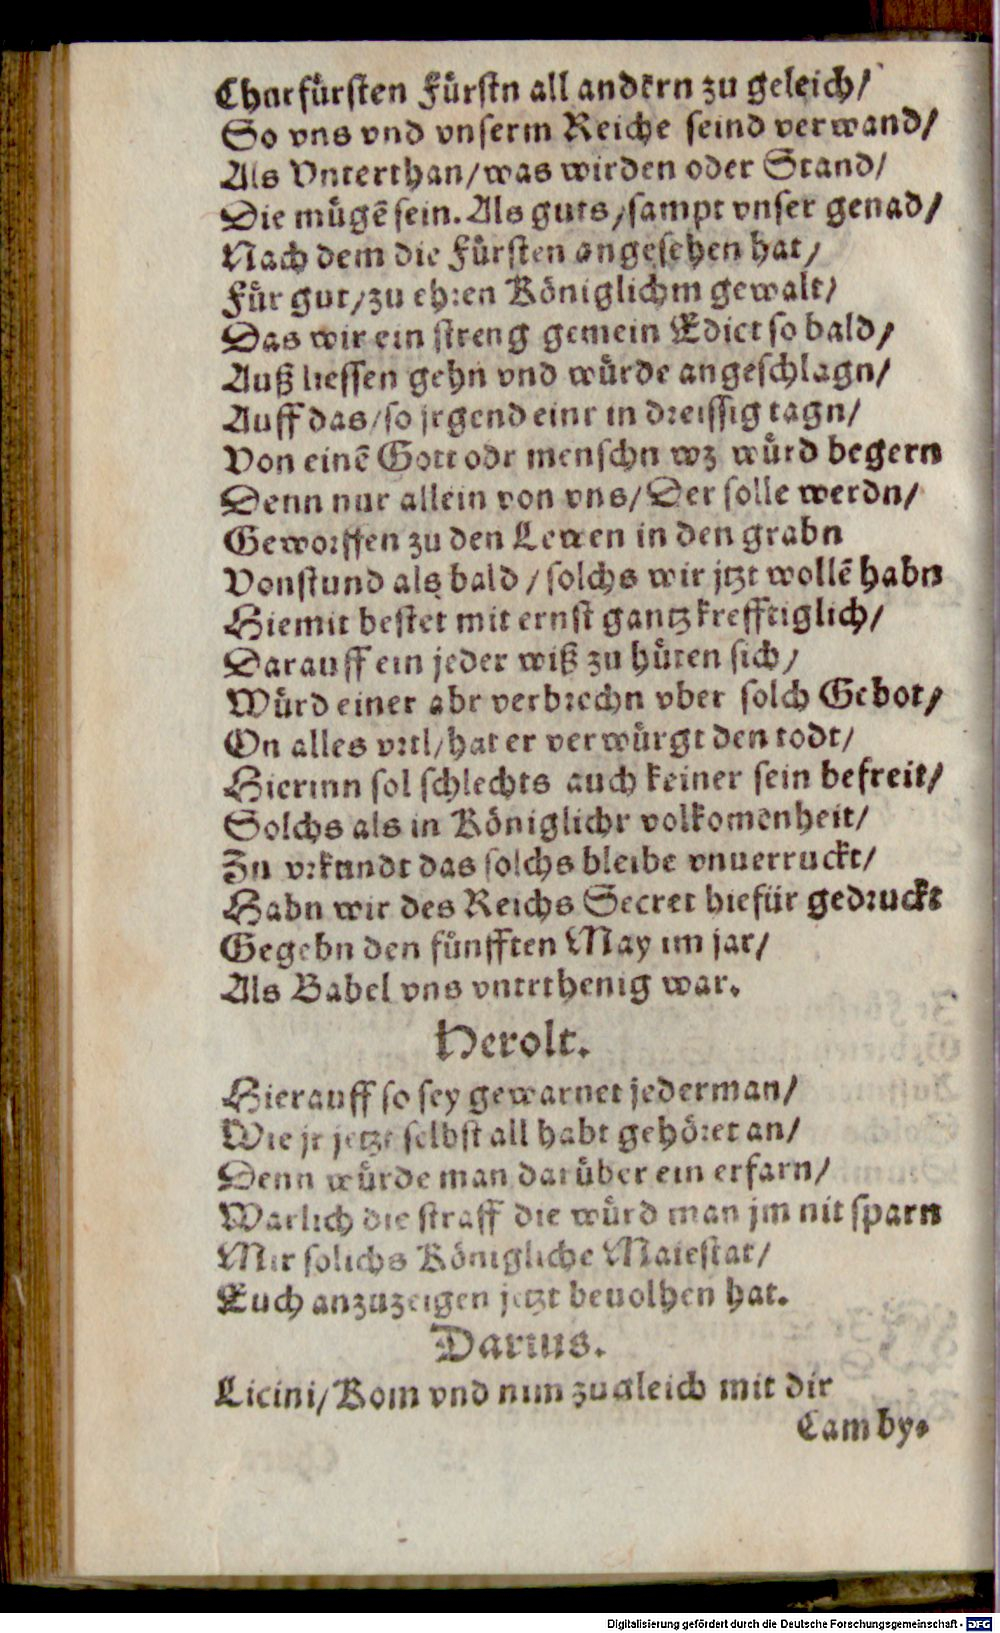 Churfürsten Fürstn all andern zu geleich/
So vns vnd vnserm Reiche seind verwand/
Als Vnterthan/was wirden oder Stand/
Die mügẽ sein. Als guts/sampt vnser genad/
Nach dem die Fürsten angesehen hat/
Für gut/zu ehren Königlichm gewalt/
Das wir ein streng gemein Edict so bald/
Auß liessen gehn vnd würde angeschlagn/
Auff das/so jrgend einr in dreissig tagn/
Von einẽ Gott odr menschn wz würd begern
Denn nur allein von vns/Der solle werdn/
Geworffen zu den Lewen in den grabn
Vonstund als bald/solchs wir jtzt wollẽ habn
Hiemit bestet mit ernst gantz krefftiglich/
Darauff ein jeder wiß zu hüten sich/
Würd einer abr verbrechn vber solch Gebot/
On alles vrtl/hat er verwürgt den todt/
Hierinn sol schlechts auch keiner sein befreit/
Solchs als in Königlichr volkomenheit/
Zu vrkundt das solchs bleibe vnuerruckt/
Habn wir des Reichs Secret hiefür gedruckt
Gegebn den fünfften May im jar/
Als Babel vns vntrthenig war.
Herolt.
Hierauff so sey gewarnet jederman/
Wie jr jetzt selbst all habt gehöret an/
Denn würde man darüber ein erfarn/
Warlich die straff die würd man jm nit sparn
Mir solichs Königliche Maiestat/
Euch anzuzeigen jetzt beuolhen hat.
Darius.
Licini/Kom vnd nim zugleich mit dir
Camby-
Digitalisierung gefördert durch die Deutsche Forschungsgemeinschaft - DFG